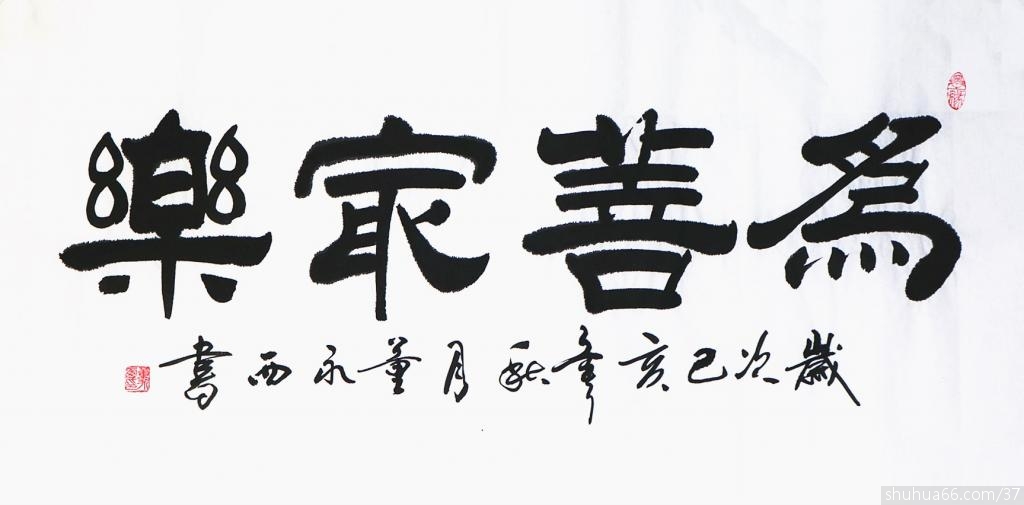 為善最樂
歲次己亥年秋月董永西書
shuhua66.com/37